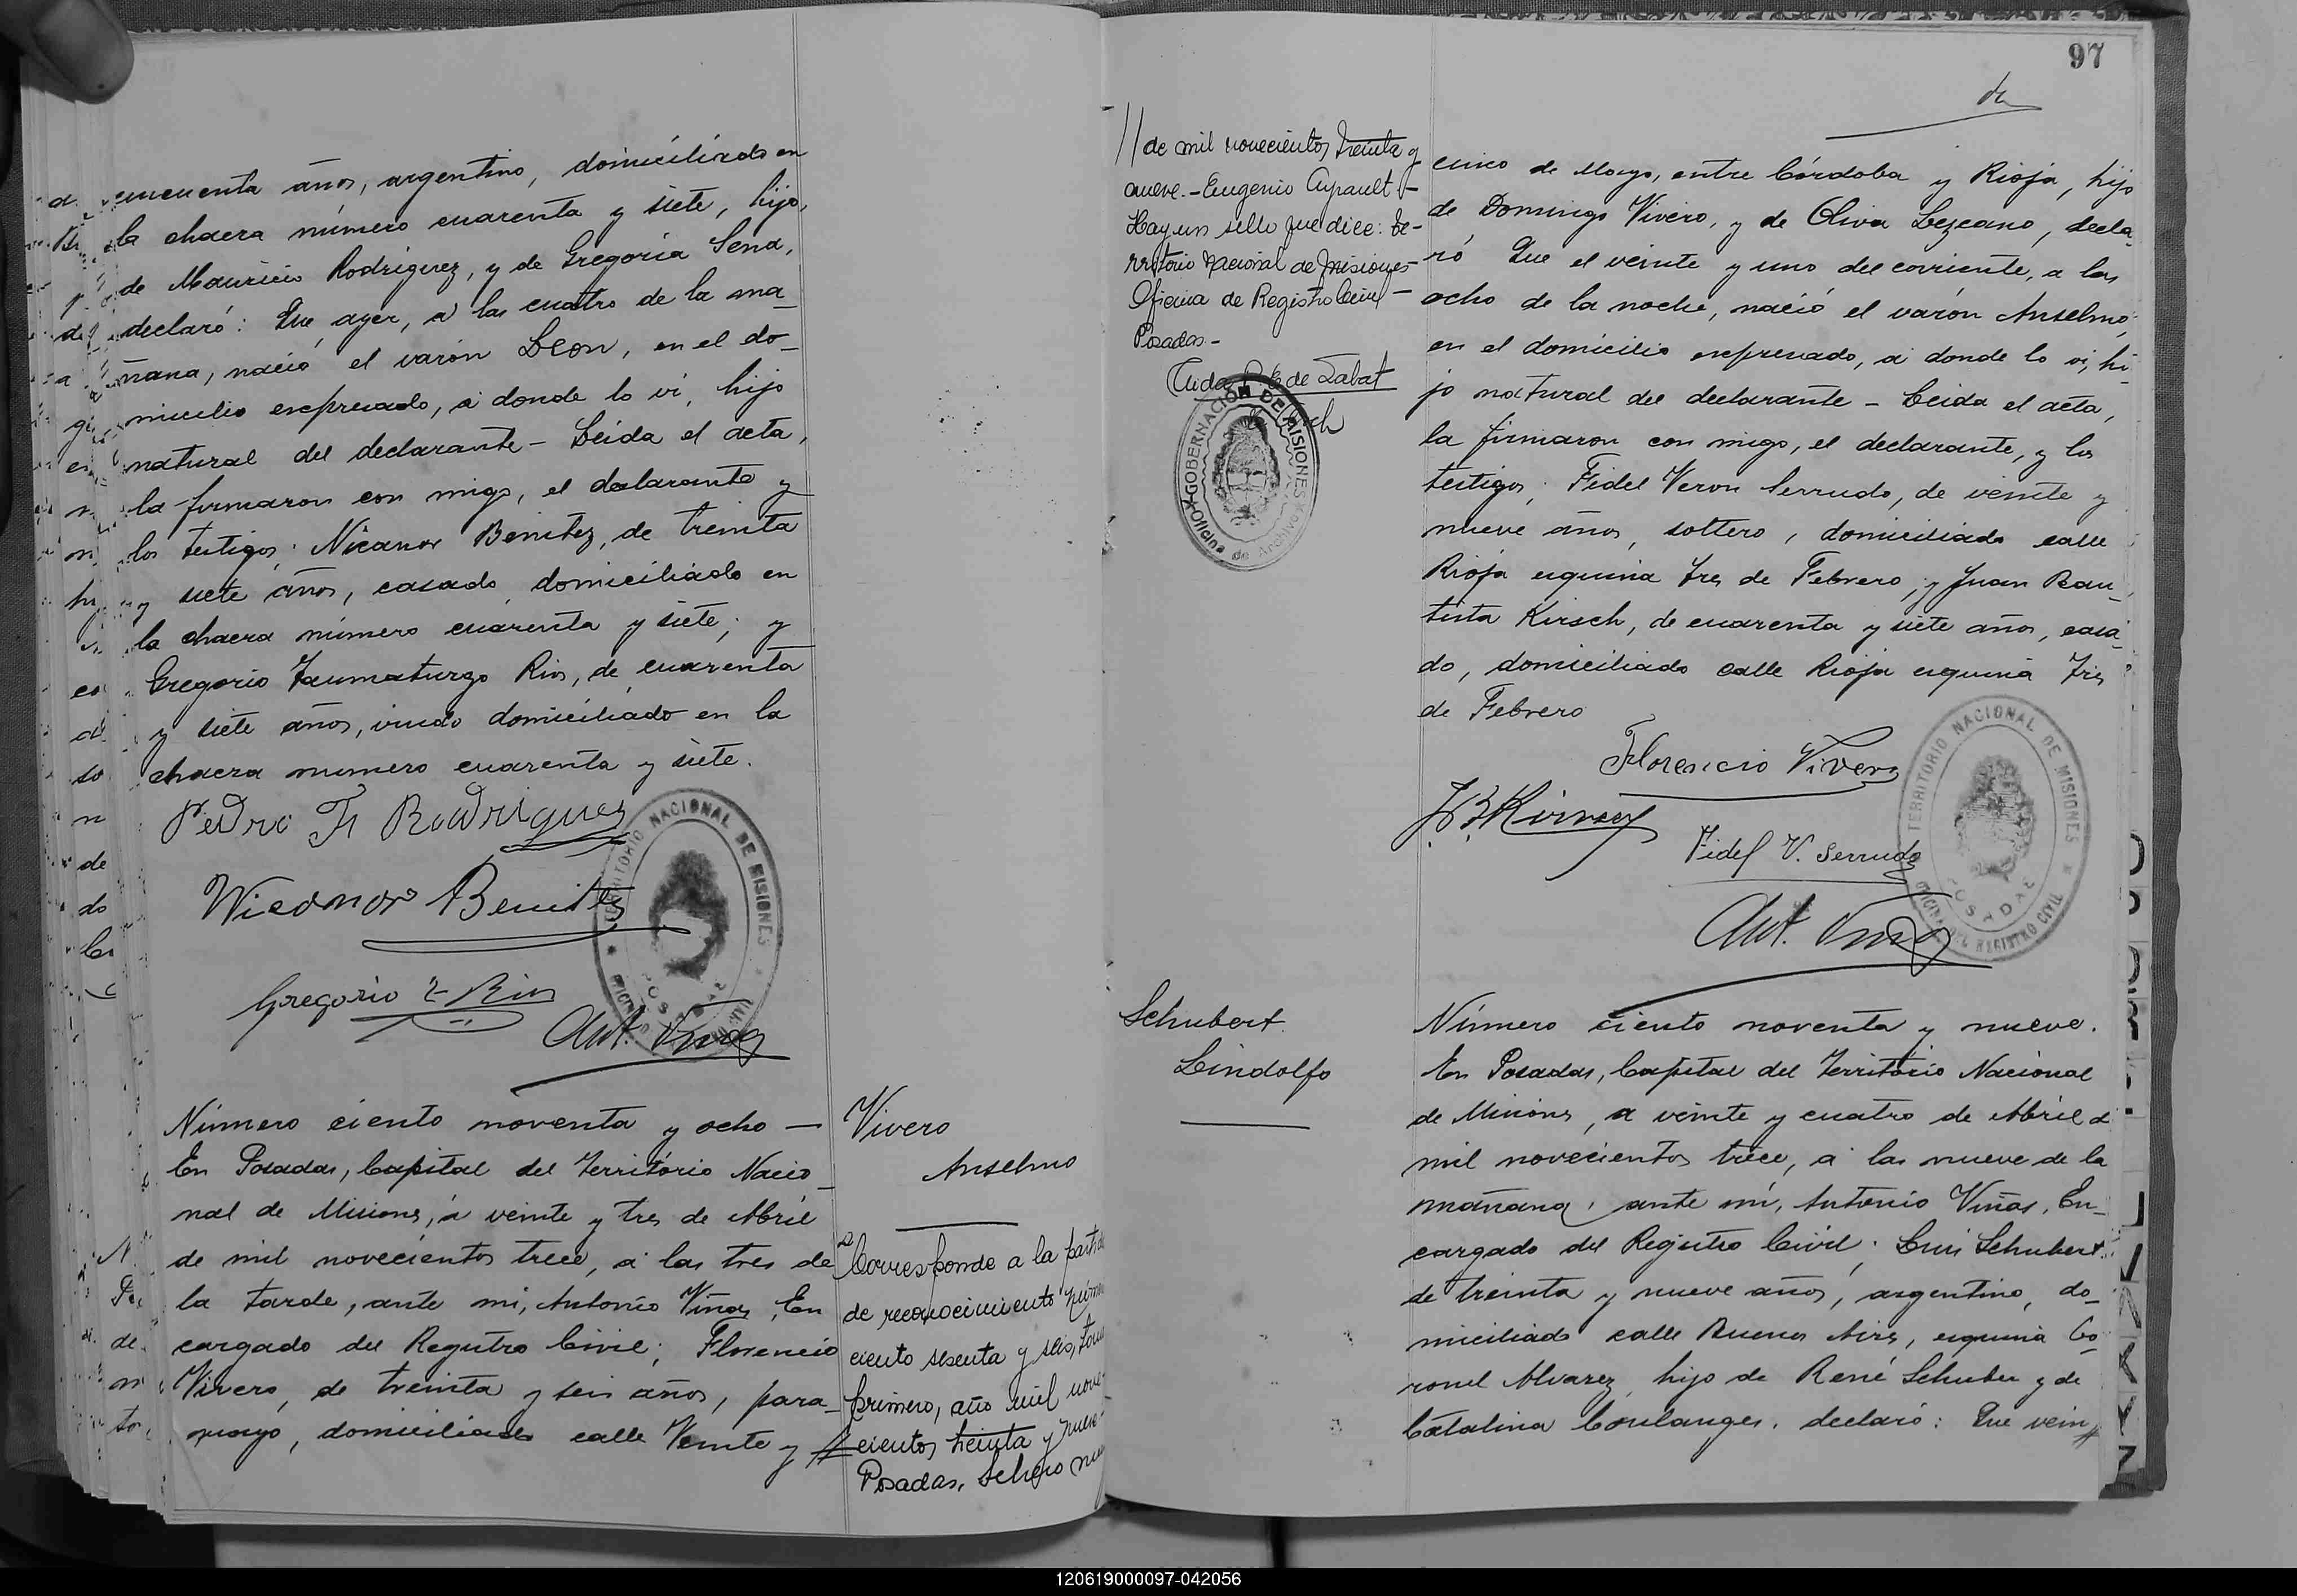 cincuenta años, argentino, domiciliado en
la chacra número cuarenta y siete, hijo,
de Mauricio Rodriguez, y de Gregoria Sena,
declaró: Que, ayer, a las cuatro de la ma_
ñana, nació el varón Leon, en el do_
micilio expresado, a donde lo vi, hijo
natural del declarante - Leida el acta,
la firmaron con migo, el declarante y
los testigos; Nicanor Benitez, de treinta
y siete años, casado, domiciliado en
la chacra número cuarenta y siete; y
Gregorio Taumaturgo Rios, de cuarenta
y siete años, viudo domiciliado en la
chacra numero cuarenta y siete.
Pedro F Rodriguez
Nicanor Benitez
Gregorio T Rios
TERRITORIO NACIONAL DE MISIONES
POSADAS
Ant. Viñas
Número ciento noventa y ocho —
En Posadas, Capital del Territorio Nacio_
nal de Misiones, a veinte y tres de Abril
de mil novecientos trece, a las tres de
la tarde, ante mi, Antonio Viñas, En
cargado del Registro Civil; Florencio
Vivero, de treinta y seis años, para_
guayo, domiciliado calle Veinte y //
Vivero
Anselmo
Corresponde a la partida
de reconocimiento núme
ciento sesenta y seis, tomo
primero, año mil nove-
cientos treinta y nueve-
Posadas,
97
de
// de mil novecientos treinta y
nueve.- Eugenio Ayrault -
Hay un sello que dice: Te-
rritorio Nacional de Misiones-
Oficina de Registro Civil -
Posadas -
de Labat
GOBERNACIÓN DE MISIONES
Oficina de Archivo
cinco de Mayo, entre Córdoba y Rioja, hijo
de Domingo Vivero, y de Oliva Lezcano, decla_
ró Que el veinte y uno del corriente, a las
ocho de la noche, nació el varón Anselmo,
en el domicilio expresado, a donde lo vi, hi_
jo natural del declarante - Leida el acta,
la firmaron con migo, el declarante, y los
testigos; Fidel Veron Serrudo, de veinte y
nueve años, soltero, domiciliado calle
Rioja esquina Tres de Febrero; y Juan Bau_
tista Kirsch, de cuarenta y siete años, casa_
do, domiciliado calle Rioja esquina Tres
de Febrero
Florencio Vivero
J B Kirsch
Fidel V. Serrudo
TERRITORIO NACIONAL DE MISIONES
POSADAS
OFICINA DEL REGISTRO CIVIL
Ant. Viñas
Schubert
Lindolfo
Número ciento noventa y nueve.
En Posadas, Capital del Territorio Nacional
de Misiones, a veinte y cuatro de Abril d
mil novecientos trece, a las nueve de la
mañana, ante mi, Antonio Viñas, En_
cargado del Registro Civil; Luis Schubert
de treinta y nueve años, argentino, do_
miciliado calle Buenos Aires, esquina Co_
ronel Alvarez, hijo de René Schuber y de
Catalina Coulanges, declaró: Que vein//
120619000097-042056